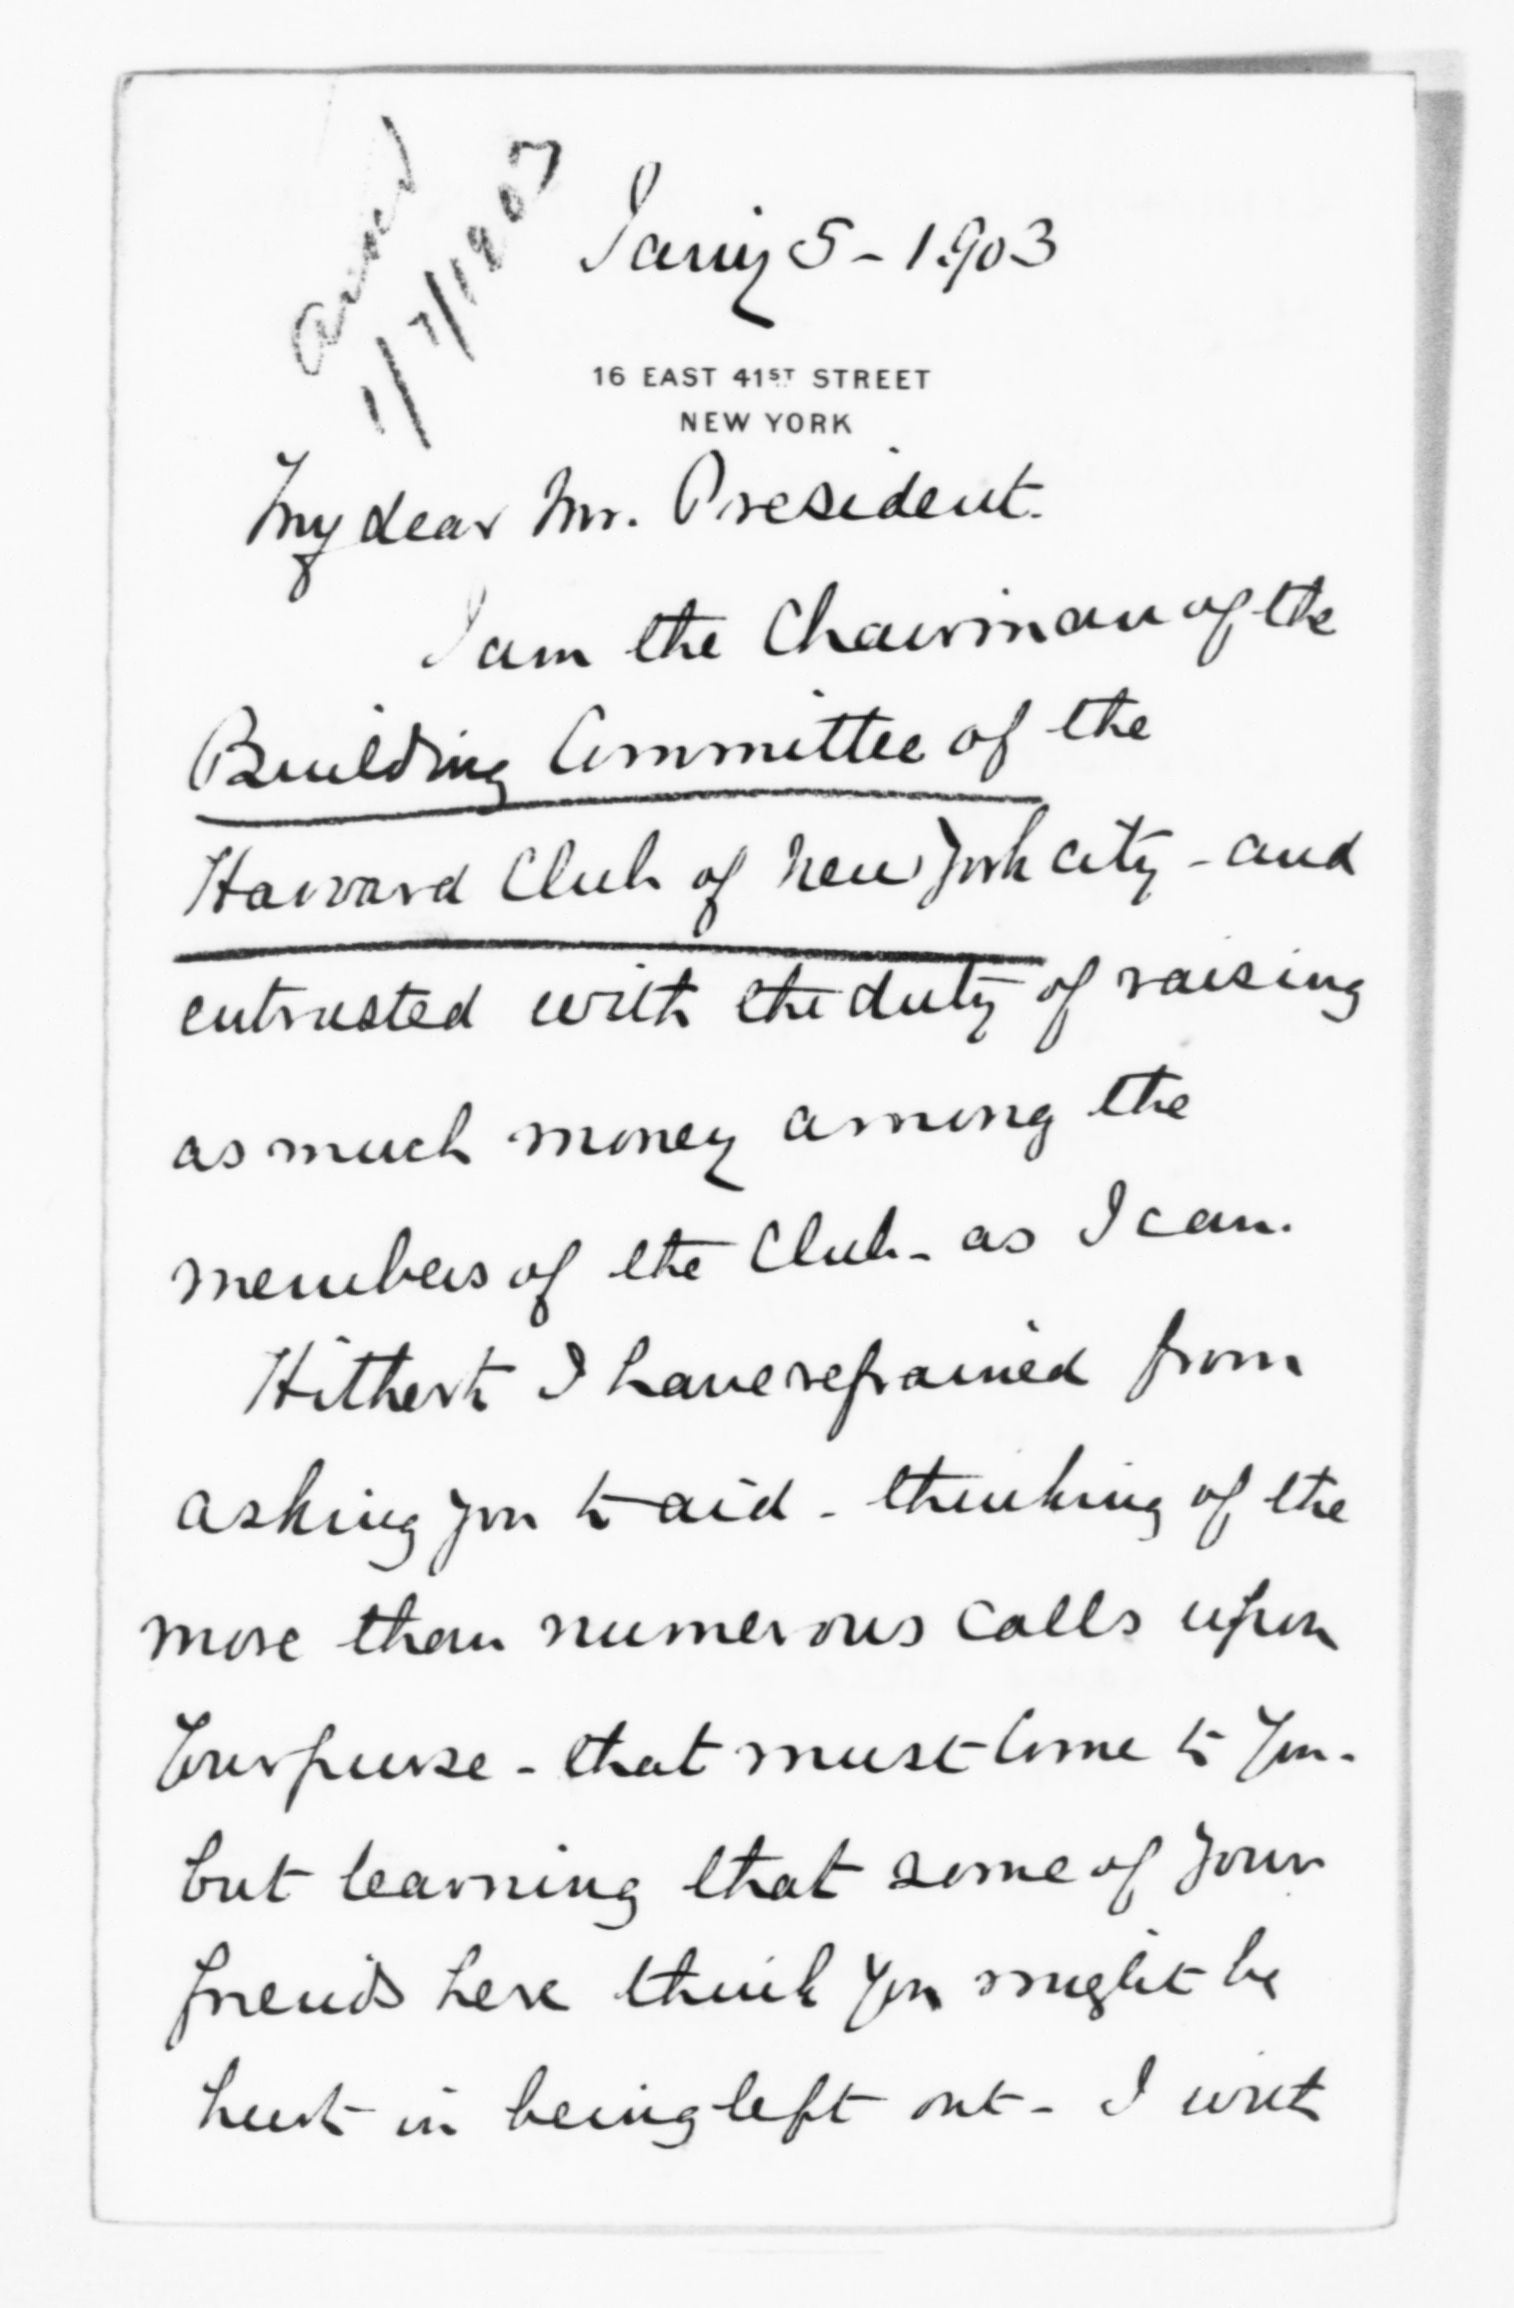 Jan'y 5 - 1903
ansd
1/7/1903
16 EAST 41ST STREET
NEW YORK
My dear Mr. President.
I am the Chairman of the
Building Committee of the
Harvard Club of New York city - and
entrusted with the duty of raising
as much money among the
members of the Club - as I can.
Hitherto I have refrained from
asking you to aid - thinking of the
more than numerous calls upon
Your purse - that must come to You -
but learning that some of your
friends here think you might be
hurt in being left out - I write